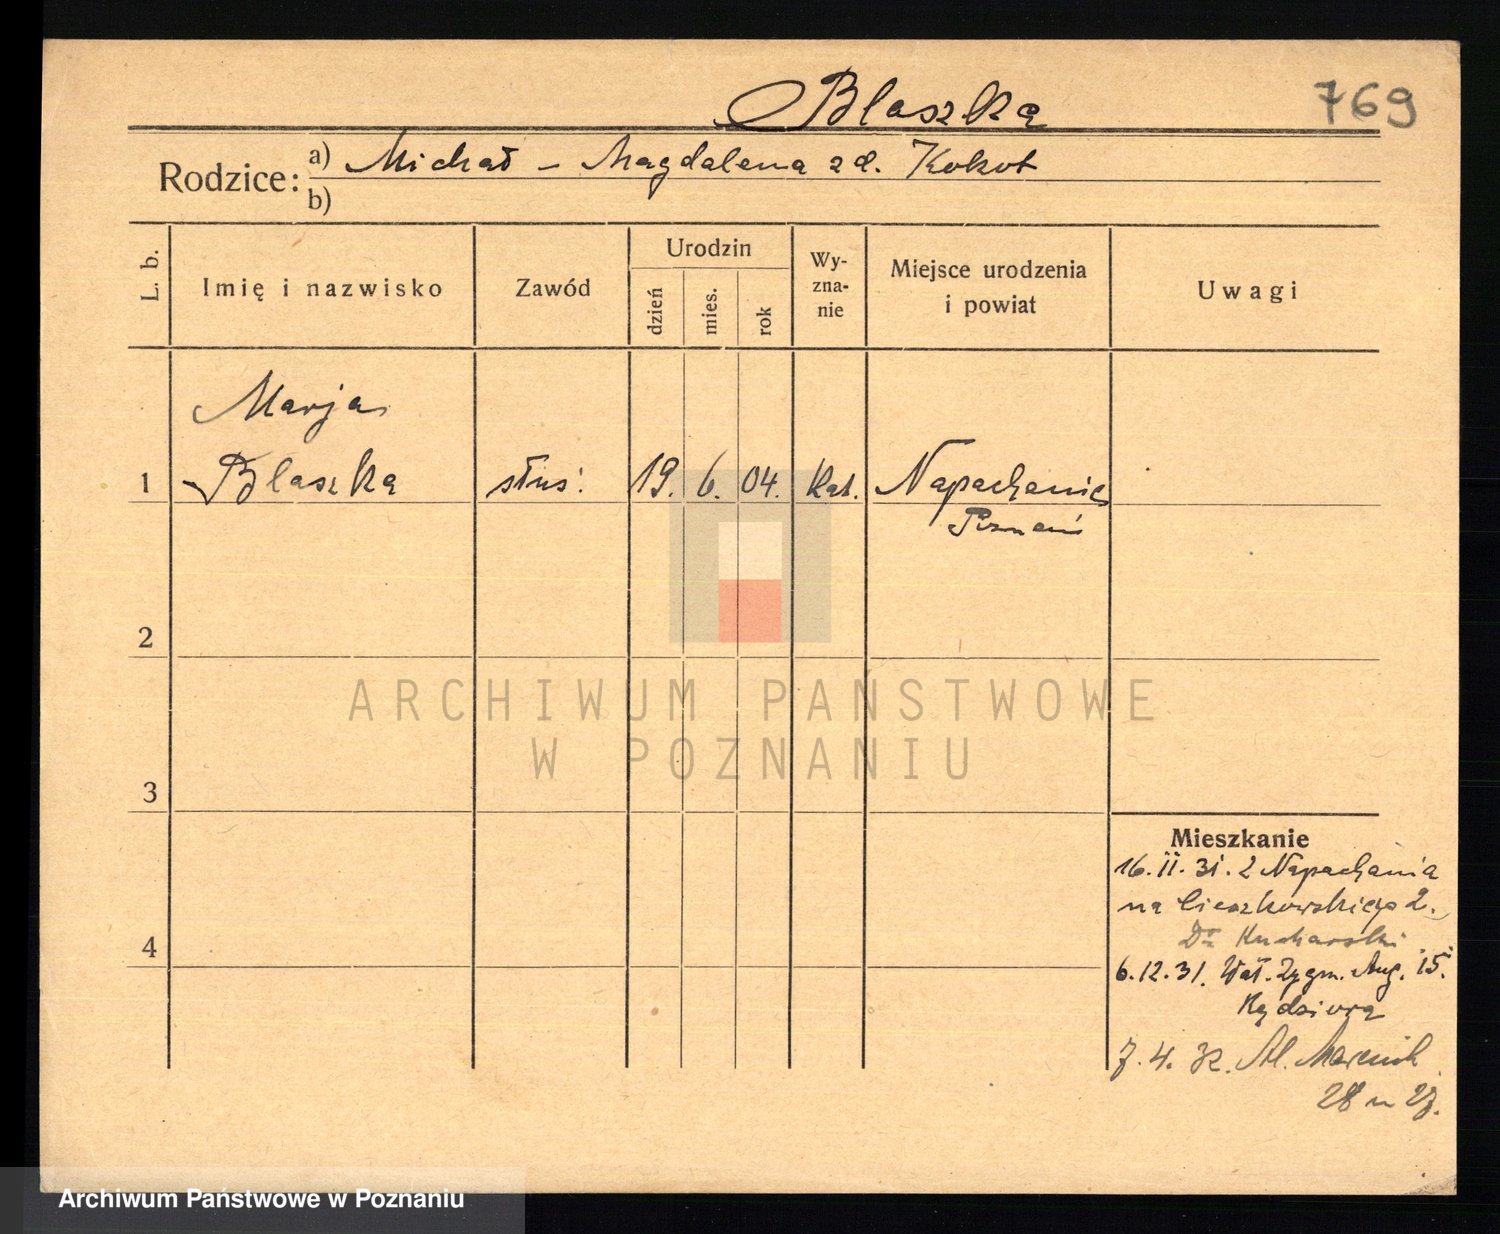 Blaszka
769
Rodzice: a) Michał – Magdalena zd. Kokot
b)
L. b.
Imię i nazwisko
Zawód
Urodzin
dzień
mies.
rok
Wy-
zna-
nie
Miejsce urodzenia
i powiat
Uwagi
Marja
1 Blaszka służ. 19. 6. 04. kat. Napachanie
Poznań
2
3
4
ARCHIWUM PAŃSTWOWE
W POZNANIU
Mieszkanie
16. II. 31. z Napachania
na Cieszkowskiego 2.
Dr Kucharski
6.12.31. Wał. Zygm. Aug. 15.
Kędziora
7. 4. 32. Al. Marcink
28 m 27.
Archiwum Państwowe w Poznaniu